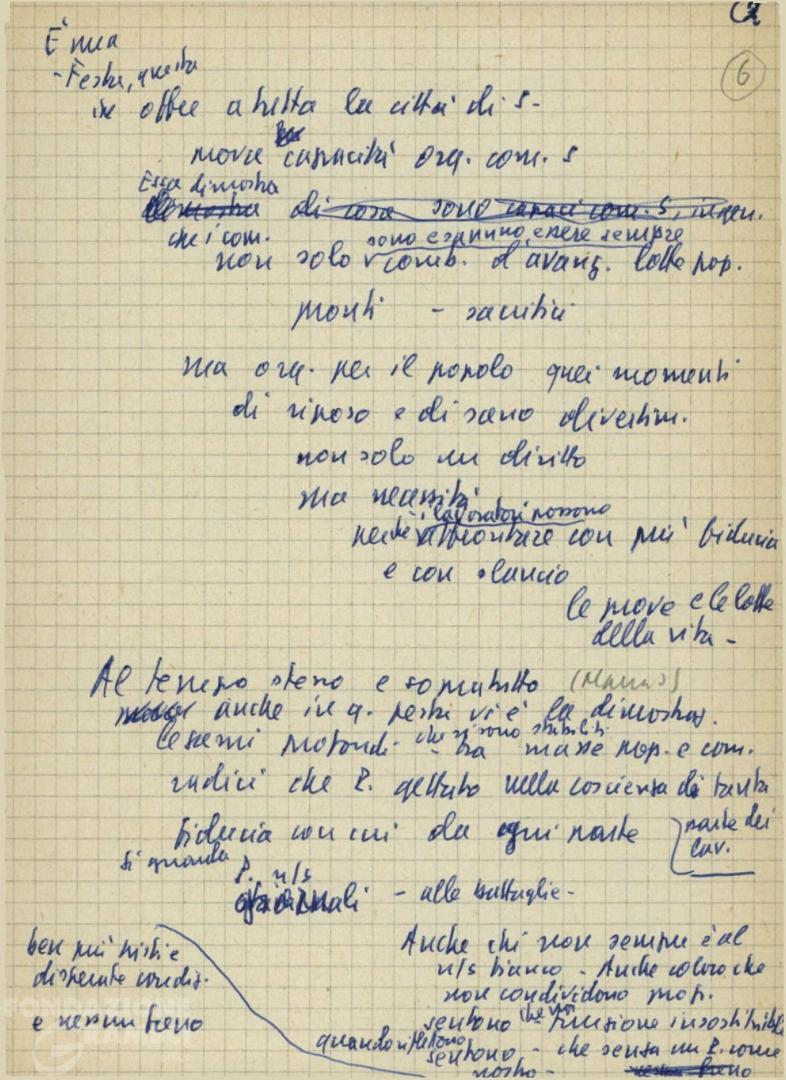 6
È una
- Festa, questa
si offre a tutta la città di S-
prova capacità org. com. S
Essa dimostra
dimostra di cosa sono capaci com. S, in gen.
che i com.
sono e sanno essere sempre
non solo comb. d'avang. lotte pop.
pronti - sacrifici
ma org. per il popolo quei momenti
di riposo e di sano divertim.
non solo un diritto
ma necessità
i lavoratori possono
perché affrontare con più fiducia
e con slancio
le prove e le lotte
della vita -
Al tempo stesso e sopratutto
anche in q. festa vi è la dimostraz.
legami profondi - che si sono stabiliti
tra masse pop. e com.
radici che P. gettato nella coscienza di tanta
fiducia con cui da ogni parte
parte dei
lav.
si guarda
P. n/s
- alle battaglie -
ben più tristi e
disperate condiz.
e nessun freno
Anche chi non sempre è al
n/s fianco - Anche coloro che
non condividono prop.
sentono che funzione insostituibile
quando riflettono
sentono - che senza un P. come
nostro -
nessun freno
FONDAZIONE
GRAMSCI